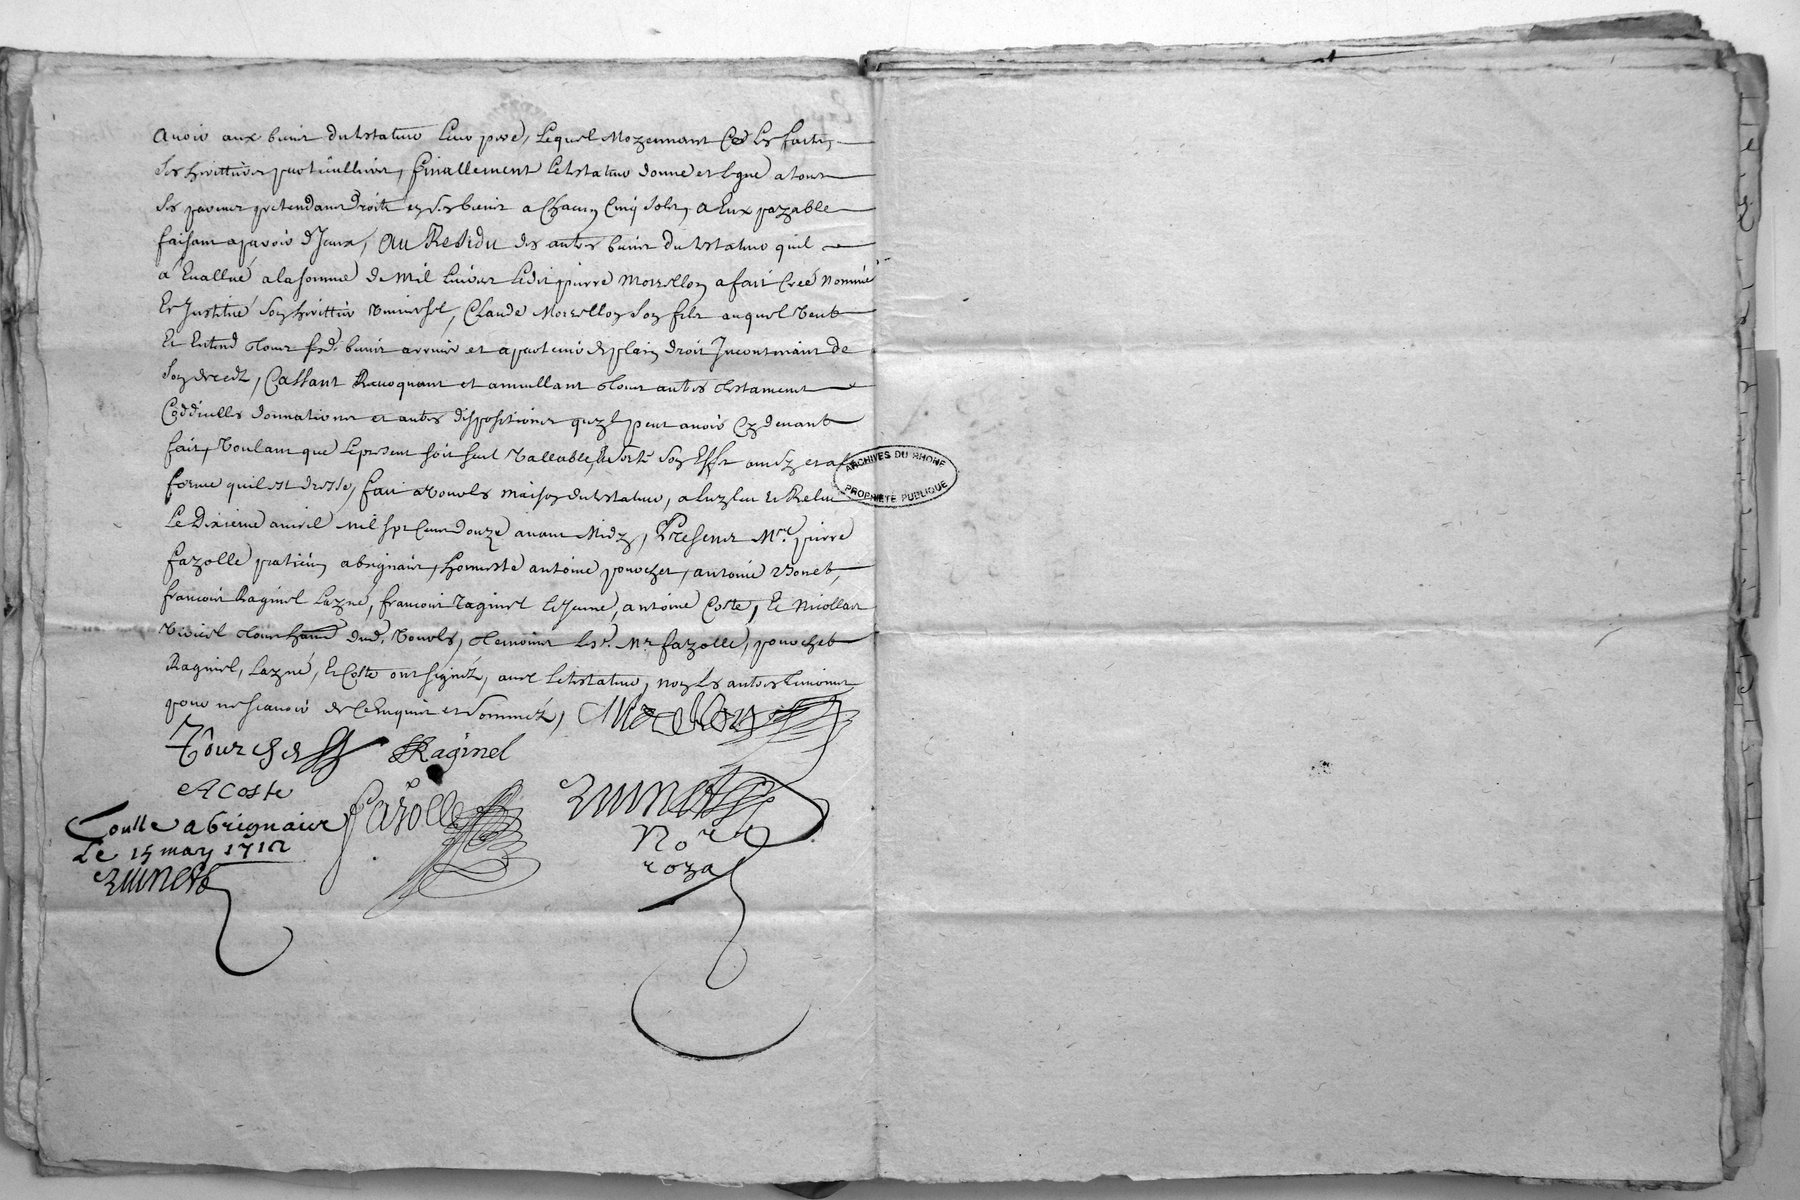 avoir aux biens du testateur leur pere, lequel moyennant ce les faits
ses herittiers particulliers, finallement le testateur donne et legue a tous
ses parens pretendans droits en ses biens a chacun cinq sols, a eux payable
faisant aparoir d'iceux, au Residu des autres biens du testateur quil
a Evallué a la somme de mil livres ledit pierre morellon a fait creé nommé
Et Institué son herittier universel, Claude Morellon son fils auquel veut
Et Entend tous sesd. biens arriver et apartenir de plain droit Incontinant
son deced, Cassant Revoquant et annullant tous autres testament
Coddicills donnations et autres dispositions quyl peut avoir cy devant
fait, voulant que le present soit seul vallable, et sorte son Effet ainsy et a la
forme quil est dresse, fait a maison du testateur, a luy leu et Releu
Le Dixieme avril mil sept cent douze avant Midy, Presens Mre. pierre
fazolle praticien a brignais, honneste antoine pourchet, antoine
francois Raginel layné, francois raginel le Jeune, antoine Coste, Et Nicollas
tous dud. temoins les. Mr. fazolle, pourchet
Raginel, layné, Et Coste ont signéz, avec le testateur, non les autres temoins
pour ne scavoir de ce Enquis et somméz,
Pourchet Raginel
A Coste
fazolle
Conlle a brignaies
Le 15 may 1712
Nore
roya
ARCHIVES DU RHONE
PROPRIÉTÉ PUBLIQUE